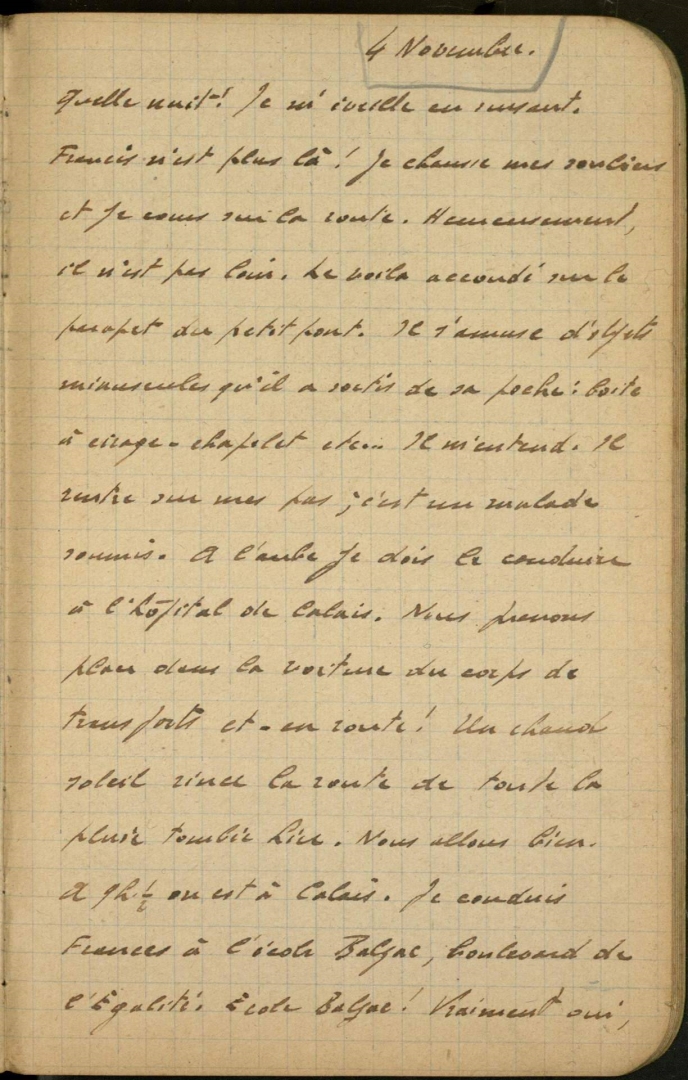 4 Novembre.
Quelle nuit! Je m'éveille en sursaut.
Francis n'est plus là! Je chausse mes souliers
et je cours sur la route. Heureusement,
il n'est pas loin. Le voilà accoudé sur le
parapet du petit pont. Il s'amuse d'objets
minuscules qu'il a sortis de sa poche: boîte
à cirage - chapelet etc... Il m'entend. Il
rentre sur mes pas; c'est un malade
soumis. A l'aube je dois le conduire
à l'hôpital de Calais. Nous prenons
place dans la voiture du corps de
transports et - en route! Un chaud
soleil rince la route de toute la
pluie tombée hier. Nous allons bien.
A 9h 1/2 on est à Calais. Je conduis
Frances à l'école Balzac, boulevard de
l'Egalité. Ecole Balzac! Vraiment oui,